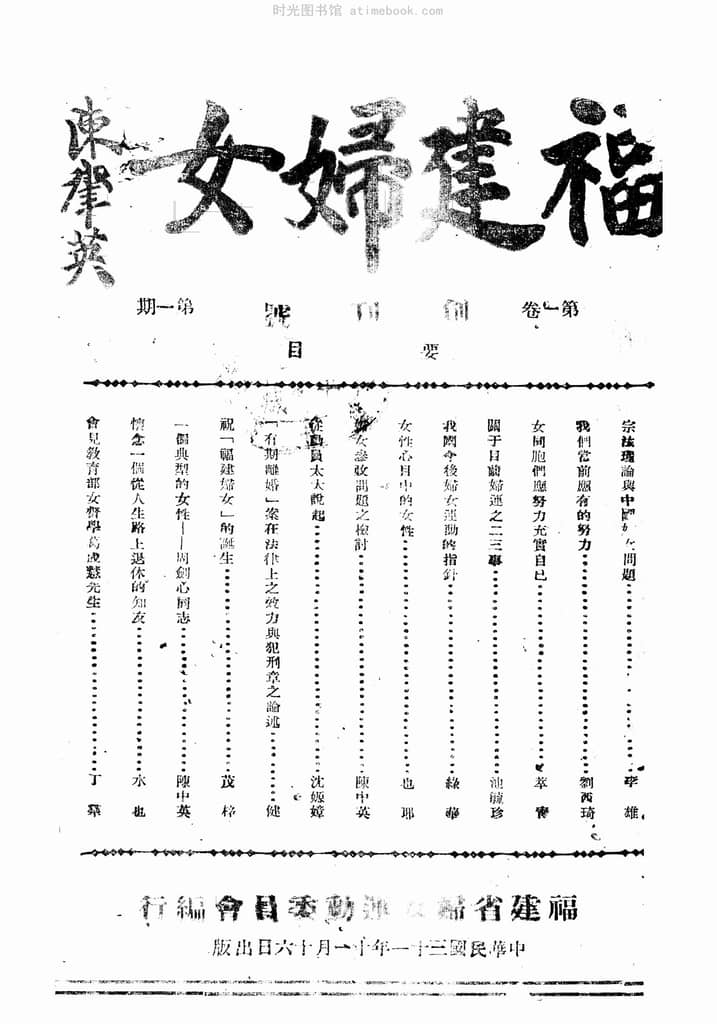 时光图书馆 atimebook.com
福建婦女
陳肇英
第一卷 創刊號 第一期
要目
宗法理論與中國婦女問題 李雄
我們當前應有的努力 劉西琦
女同胞們應努力充實自己 萃實
關于目前婦運之二三事 池毓珍
我國今後婦女運動的指針 綠華
女性心目中的女性 也耶
婦女參政問題之檢討 陳中英
從動員太太說起 沈嫄嫜
「有期離婚」案在法律上之效力與犯刑章之論述 健
祝「福建婦女」的誕生 茂梓
一個典型的女性——周劍心同志 陳中英
懷念一個從人生路上退休的知友 水也
會見教育部女督學葛成慧先生 丁
福建省婦女運動委員會編行
中華民國三十一年十一月十六日出版